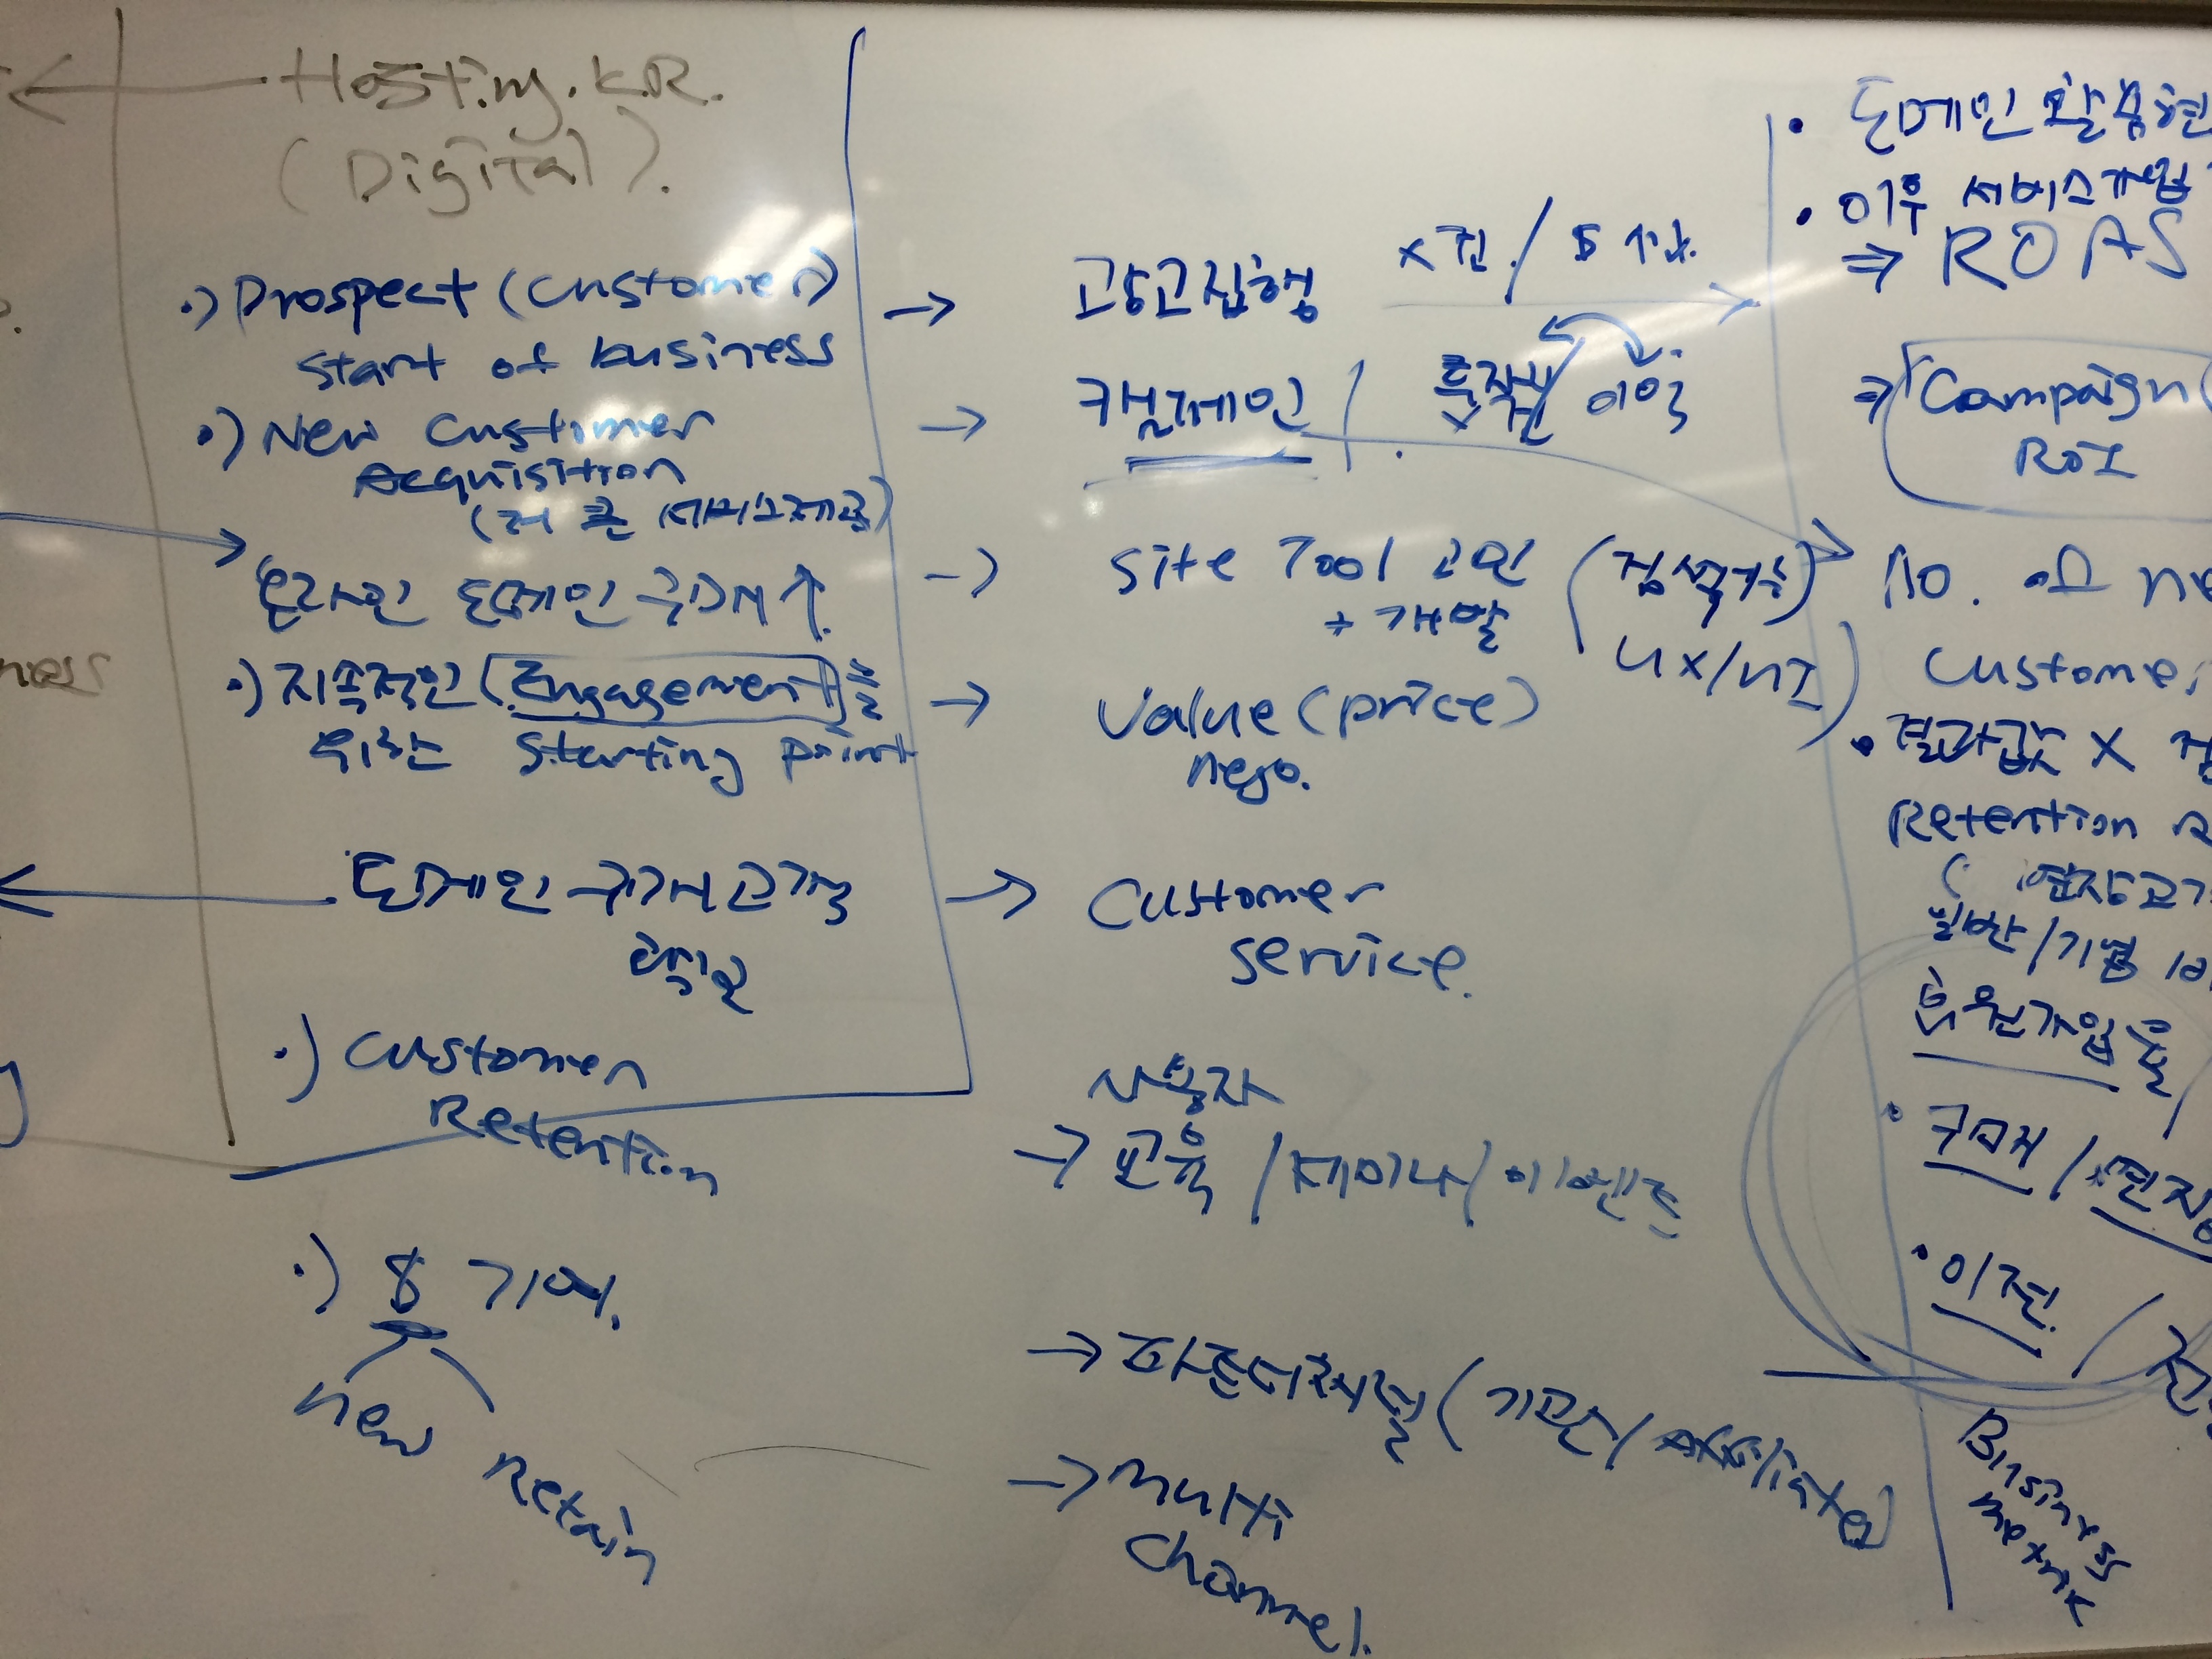 Hosting.KR.
(Digital).
·) Prospect (customer)
start of business
·) New Customer
Acquisition
(더 큰 서비스제공)
온라인 도메인 구매↑
·) 지속적인 (Engagement)를
위한 starting point
도메인 구매고객
·) Customer
Retention
·) 총 기여.
new
Retain
→ 광고집행
→ 캠페인
이익
→ site Tool 고민
+ 개발
(검색
UX/UI)
→ Value (price)
nego.
→ Customer
service.
사용자
→ 교육 / 세미나 / 이벤트
→ 파트너채널 (기관 / affiliate)
→ multi
channel.
· 도메인 활용현
· 이후 서비스가입
⇒ ROAS
⇒ Campaign
ROI
No. of ne
Customer
· 결과값 X
Retention R
일반/기업
회원가입률
· 구매 /
· 이전. /
Business
metric
ness